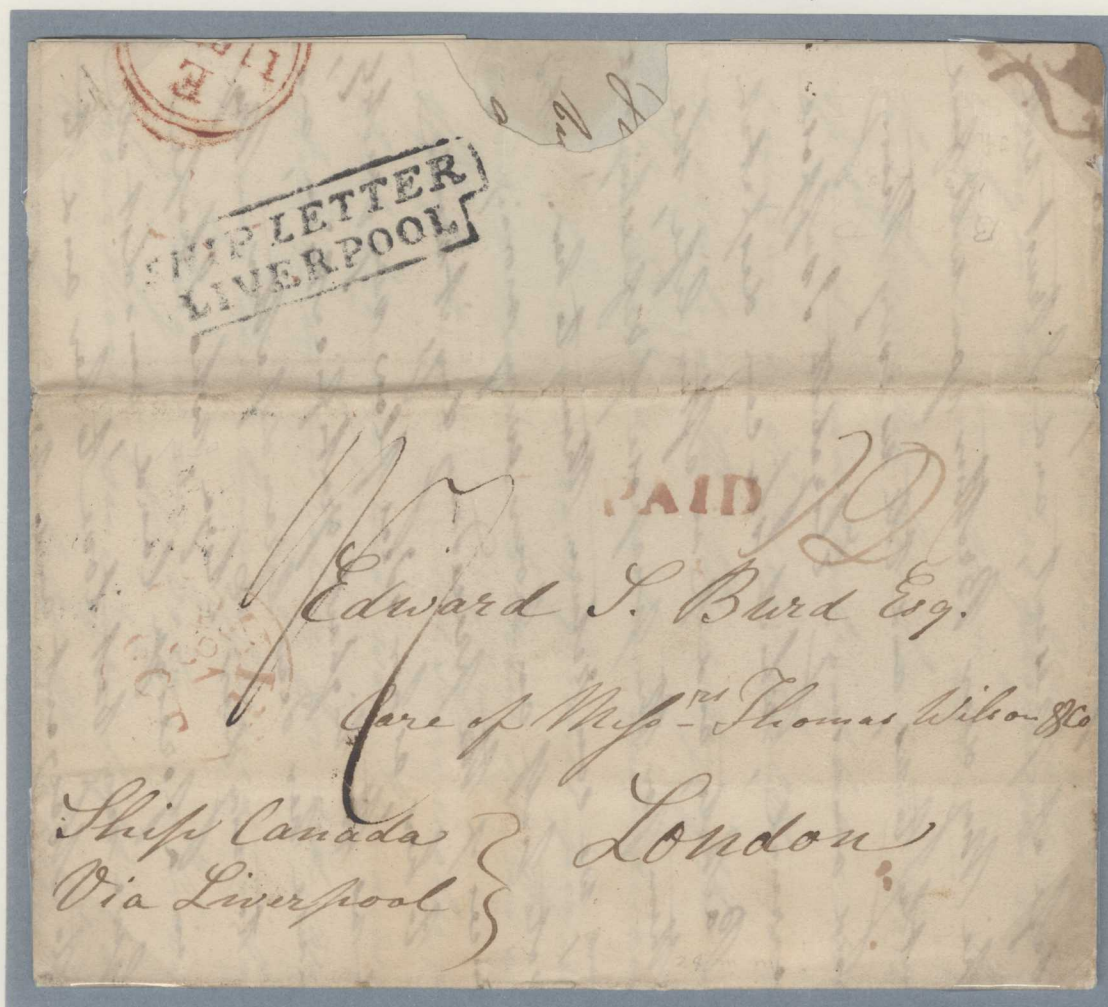 SHIP LETTER
LIVERPOOL
PAID 12
Edward S. Burd Esq.
Care of Messrs Thomas Wilson & Co
London
Ship Canada
Via Liverpool